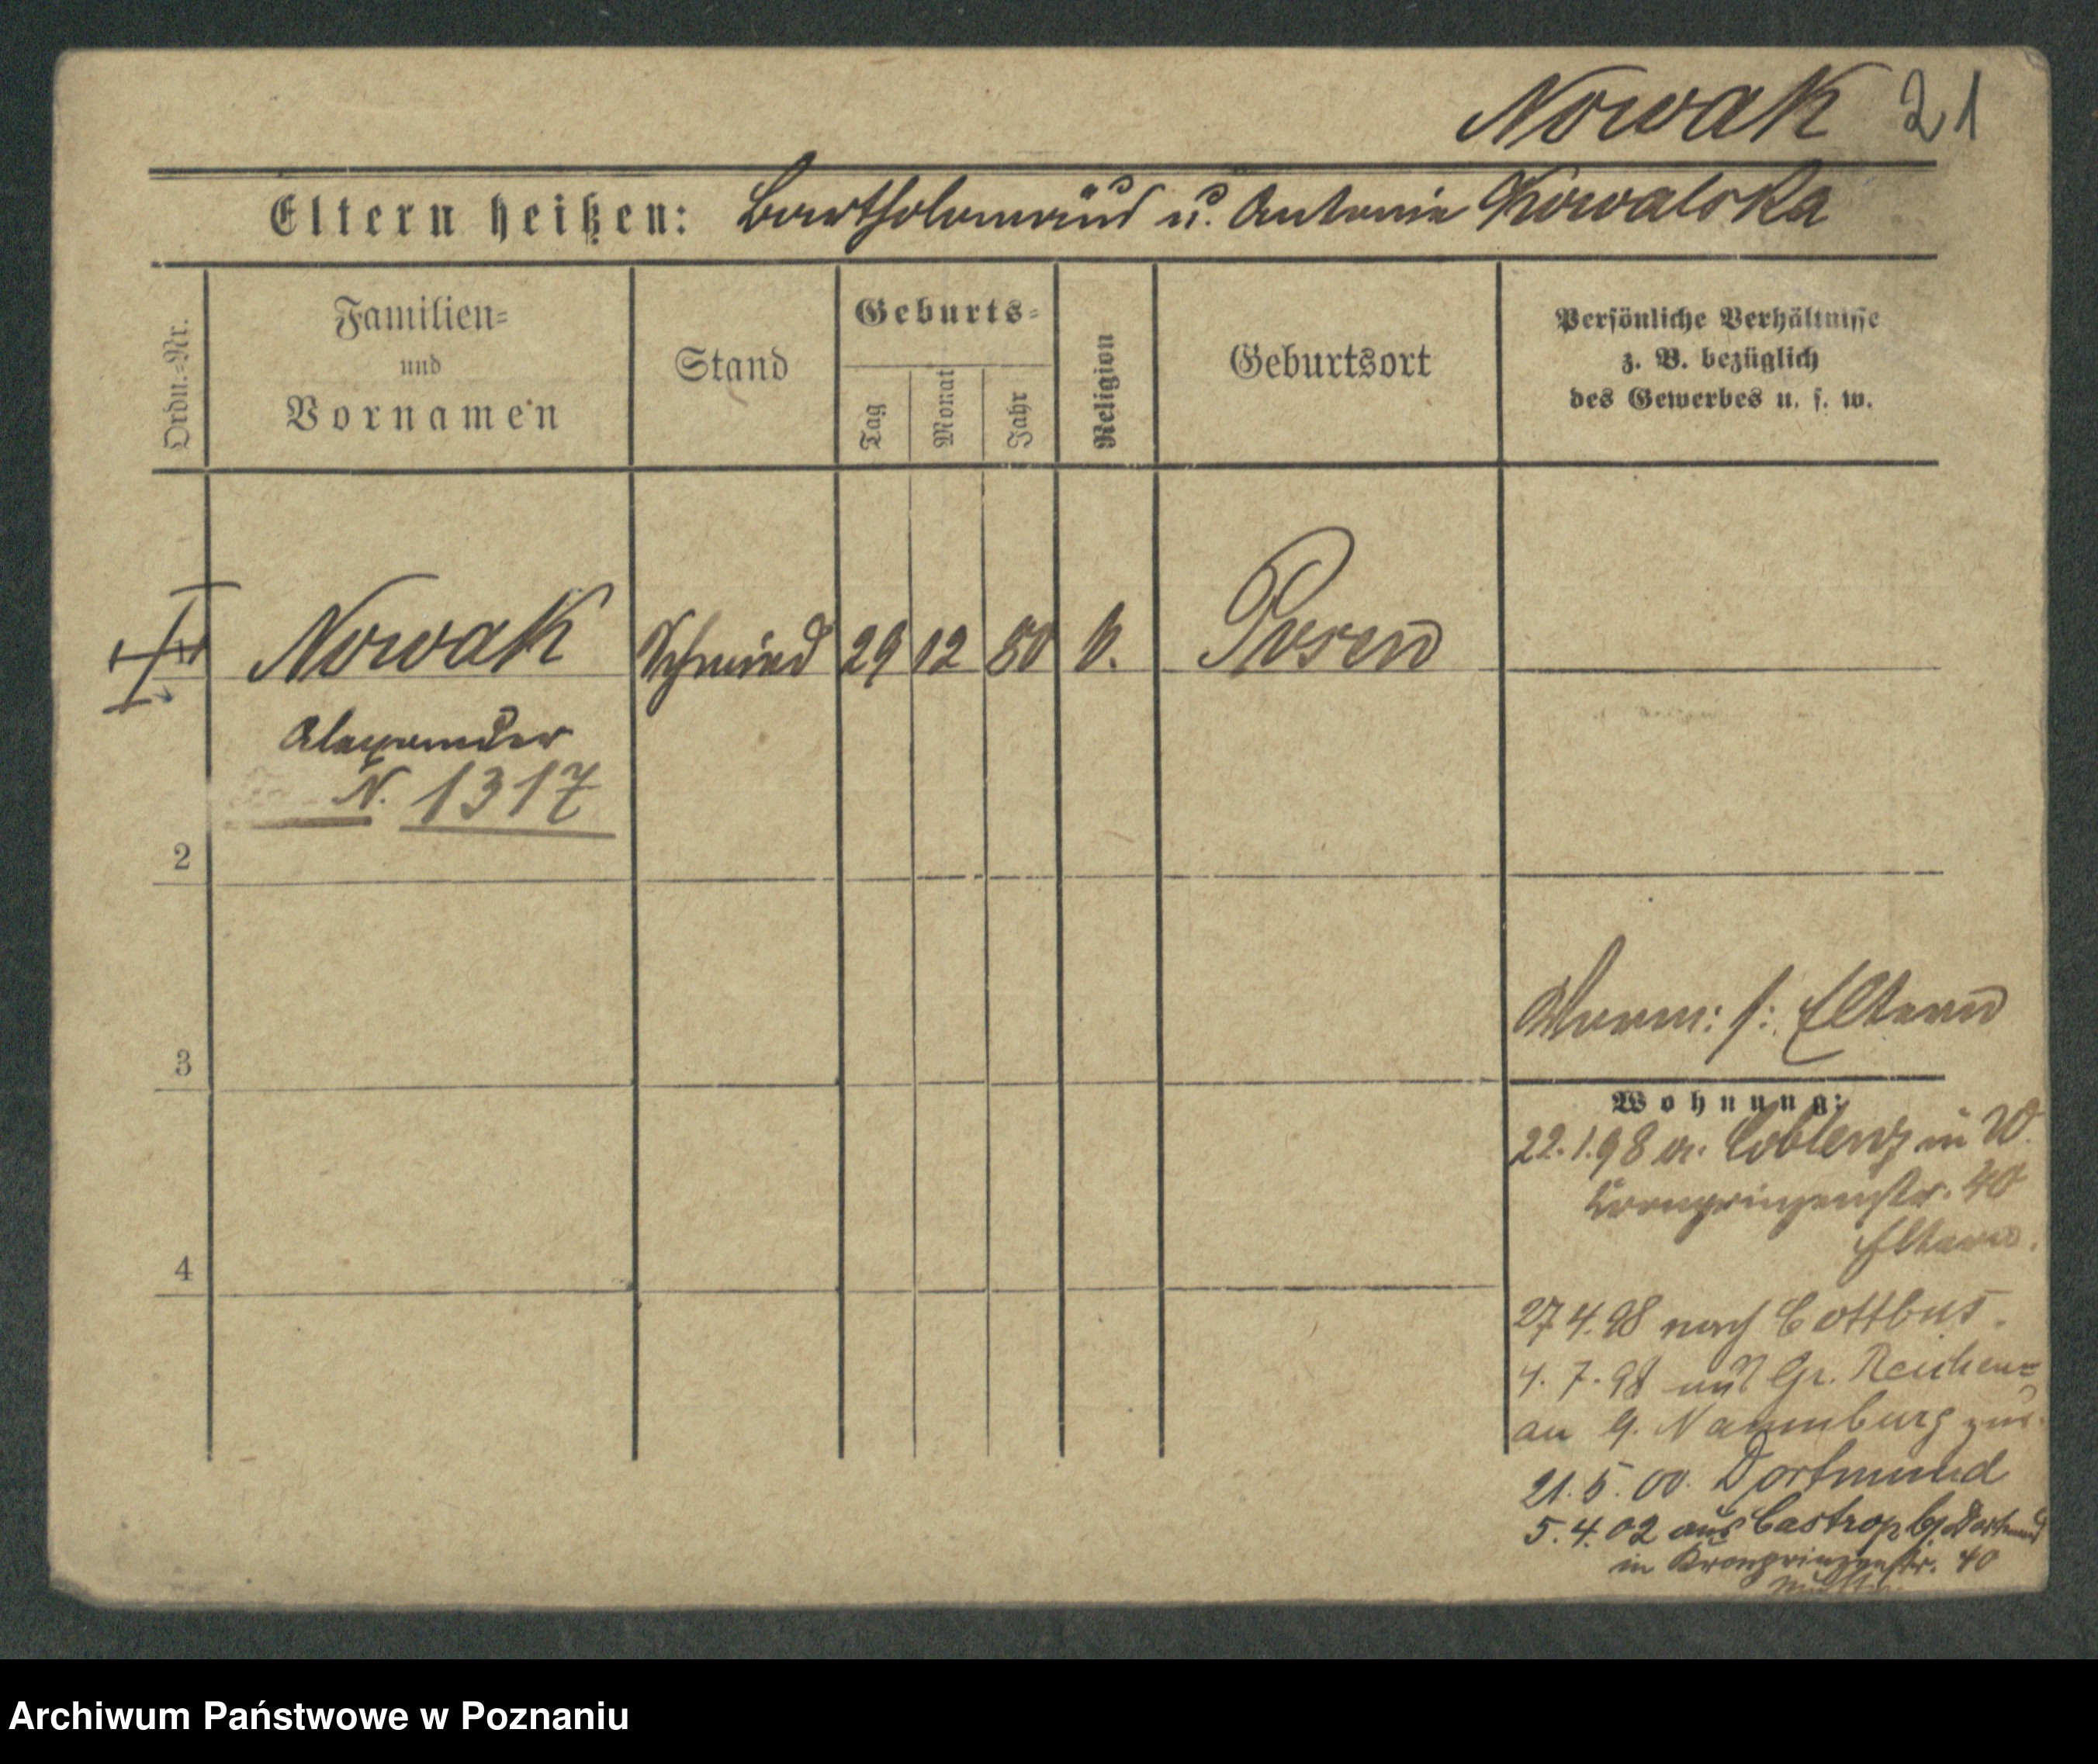 Nowak 21
Eltern heißen: Bartholomäus u. Antonie Kowalska
Ordn.=Nr.
Familien=
und
Vornamen
Stand
Geburts=
Tag
Monat
Jahr
Religion
Geburtsort
Persönliche Verhältnisse
z. B. bezüglich
des Gewerbes u. s. w.
Nowak Schmied 29 12 80 k. Posen
Alexander
N. 1317
2
3
s: Eltern
Wohnung:
22.1.98 Coblenz in W.
Kronprinzenstr. 40
Eltern.
4
27.4.98 nach Cottbus.
4.7.98 Gr. Reichen=
au Naumburg
21.5.00. Dortmund
5.4.02 aus Castrop Dortmund
in Kronprinzenstr. 40
Archiwum Państwowe w Poznaniu